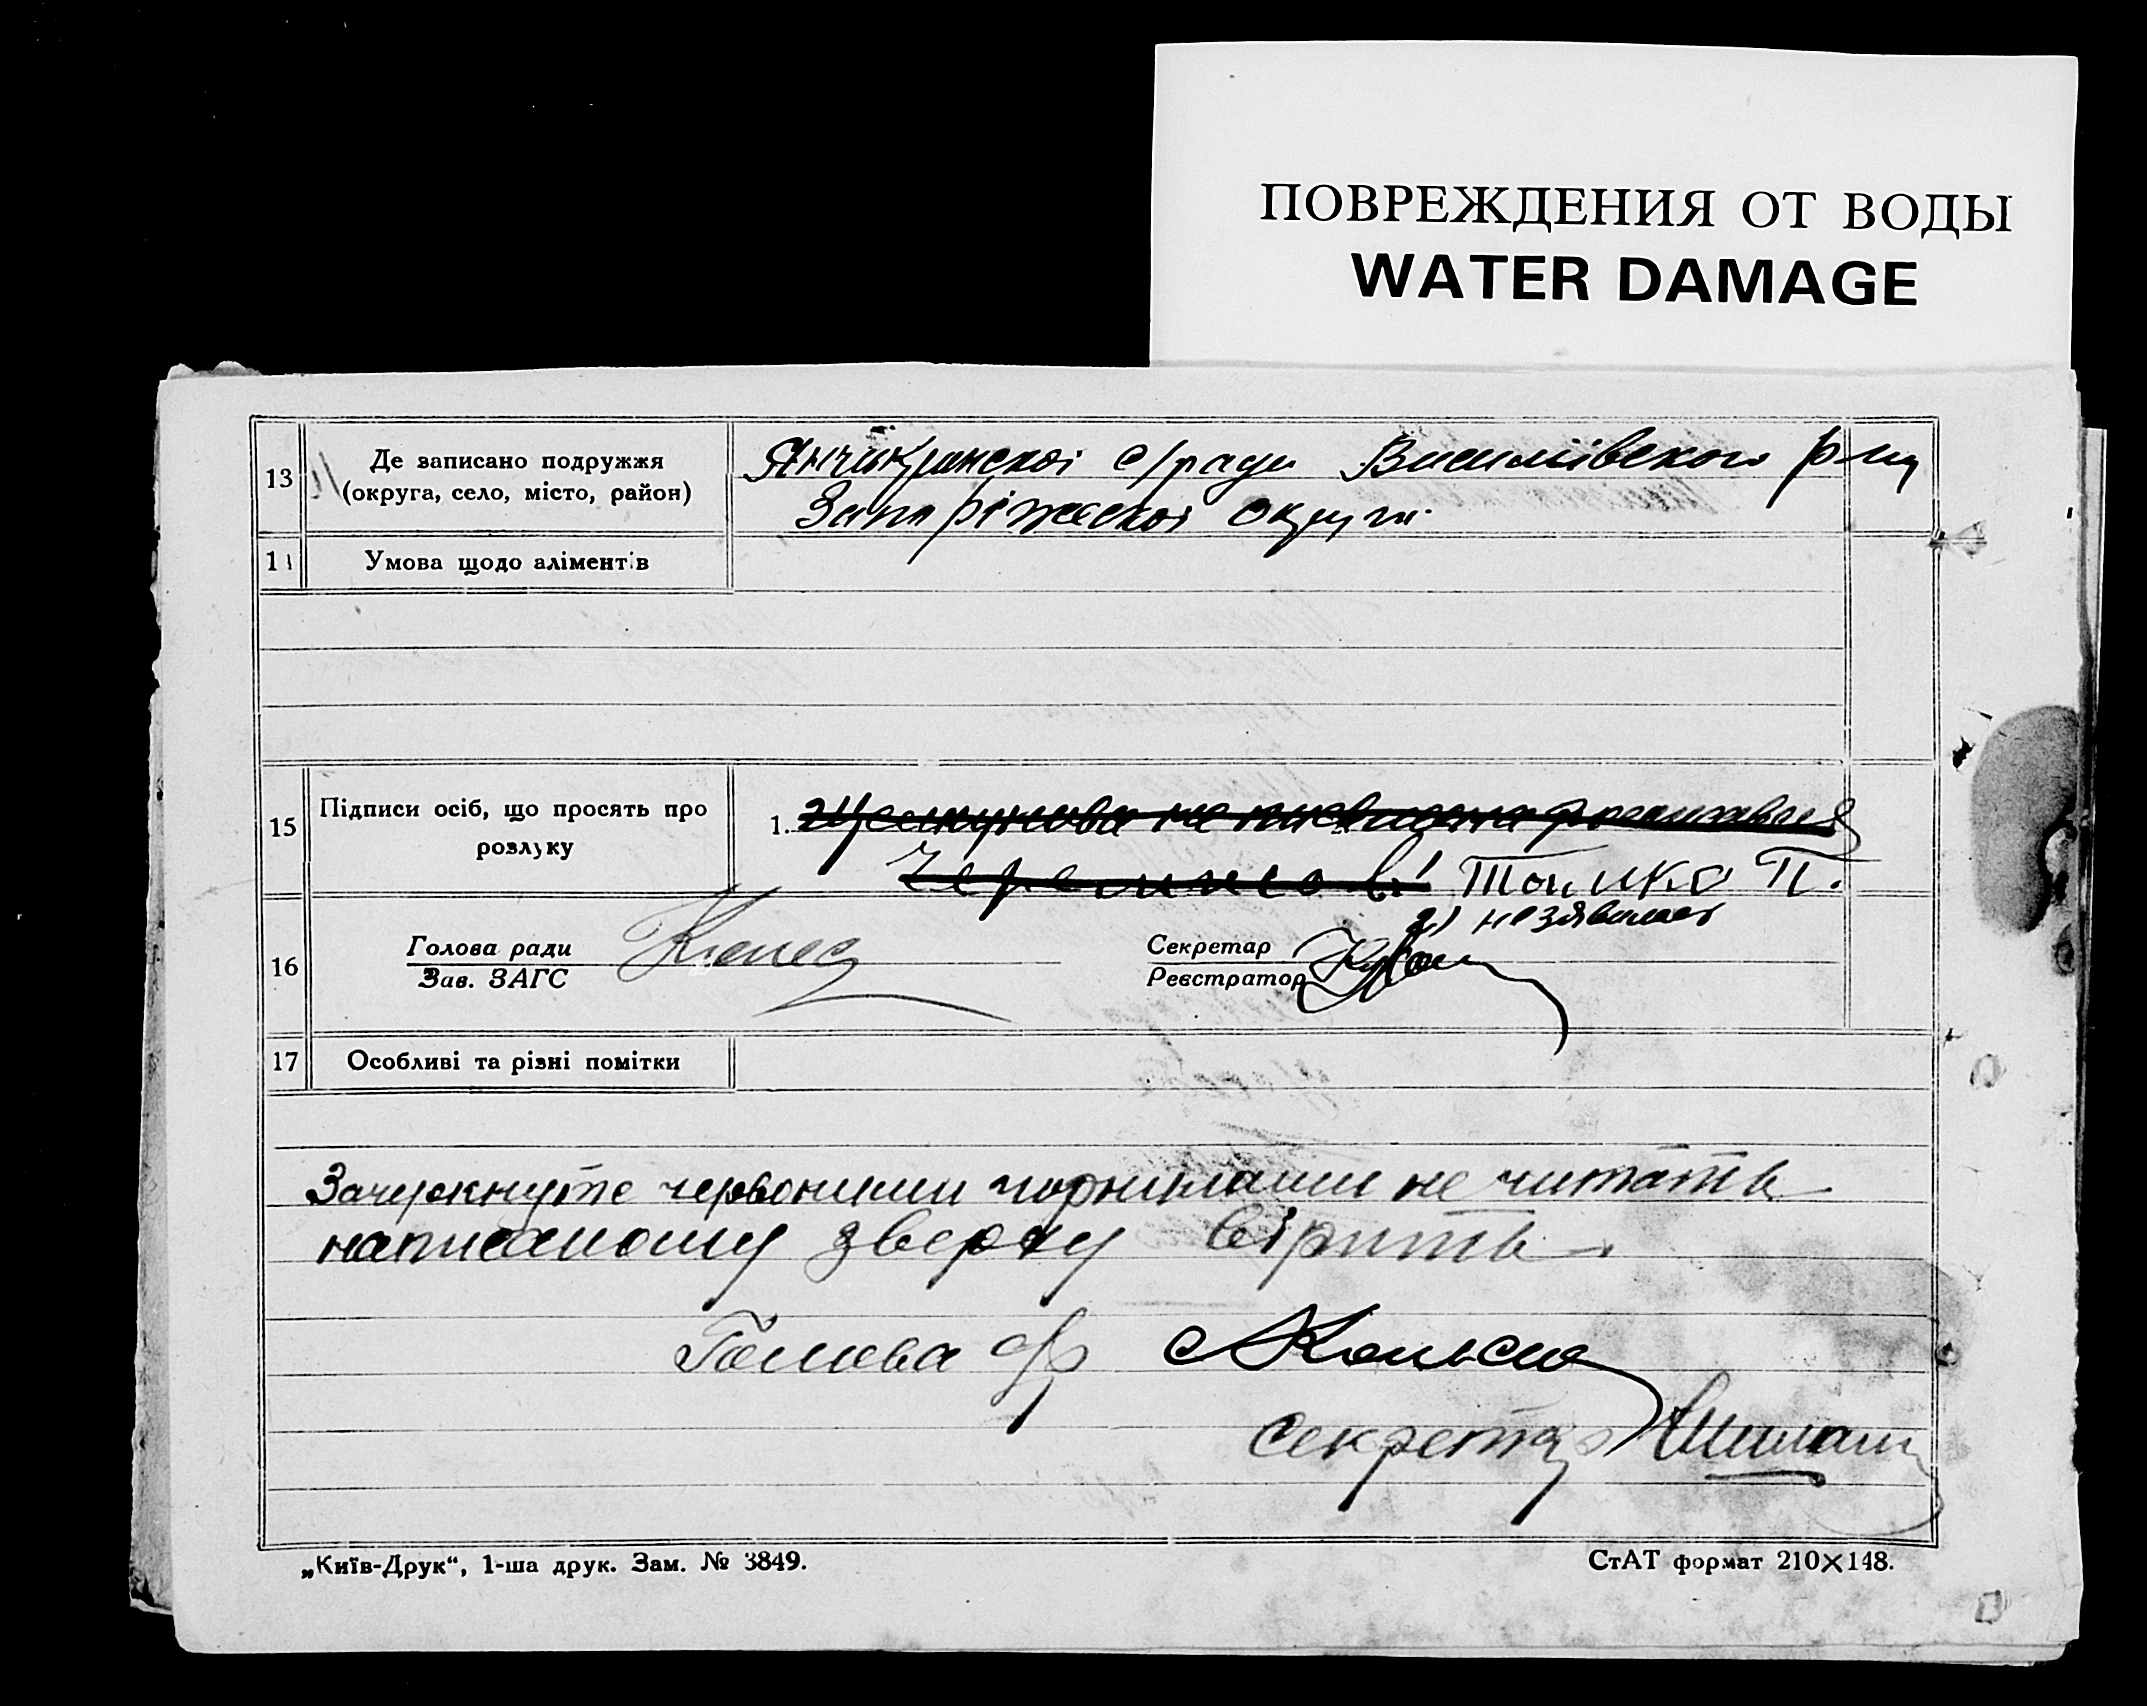 ПОВРЕЖДЕНИЯ ОТ ВОДЫ
WATER DAMAGE
13
Де записано подружжя
(округа, село, місто, район)
Янчикракскої с/ради Василівского р-ну
Запоріжської округи
Умова щодо аліментів
15
Підписи осіб, що просять про
розлуку
1.
2) не зявилась
16
Голова ради
Зав. ЗАГС
Секретар
Реєстратор
17
Особливі та різні помітки
Зачеркнуте червоними чорнилами не читать
написаному зверху вірить.
Голова с/р
секретар
„Київ-Друк“, 1-ша друк. Зам. № 3849.
СтАТ формат 210×148.